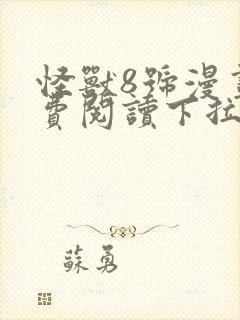 怪獸8號漫
費閱讀下拉
蘇勇